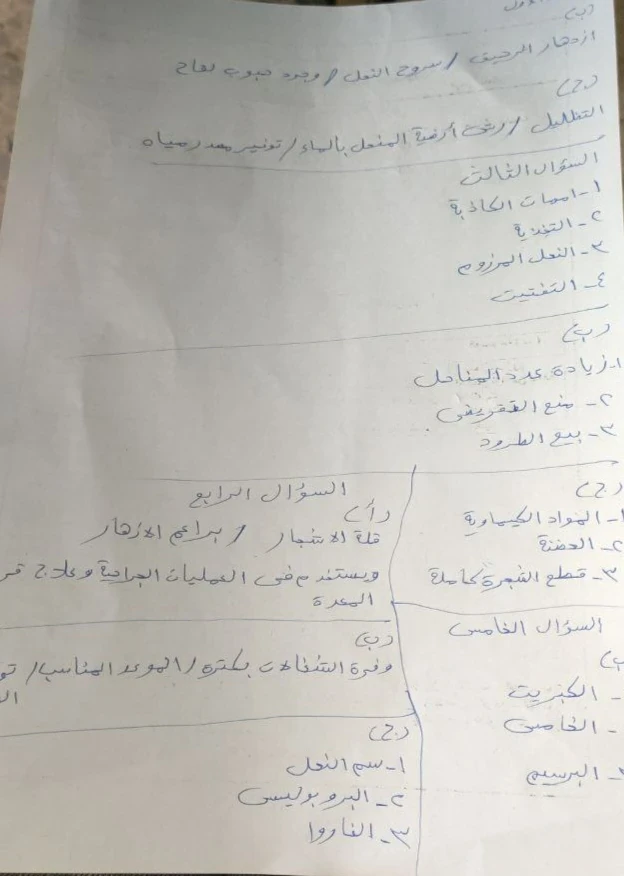 (ب)
ازدهار الرحيق / سروح النحل / وجود حبوب لقاح
(ج)
التظليل / رش أرضية المنحل بالماء / توفير مصدر مياه
السؤال الثالث
١- امهات الكاذبة
٢- التغذية
٣- النحل المرزوم
٤- التفتيت
(ب)
١- زيادة عدد المناحل
٢- منع التقريض
٣- بيع الطرود
(ج)
١- المواد الكيماوية
٢- العفنة
٣- قطع الشجرة كاملة
السؤال الرابع
(أ)
قلة الاشجار / براعم الازهار
ويستخدم في العمليات الجراحية وعلاج قر
المعدة
(ب)
وفرة الشغالات بكثرة / الموعد المناسب / تو
(ج)
١- سم النحل
٢- البروبوليس
٣- الفاروا
السؤال الخامس
- الكبريت
- الخامس
- البرسيم